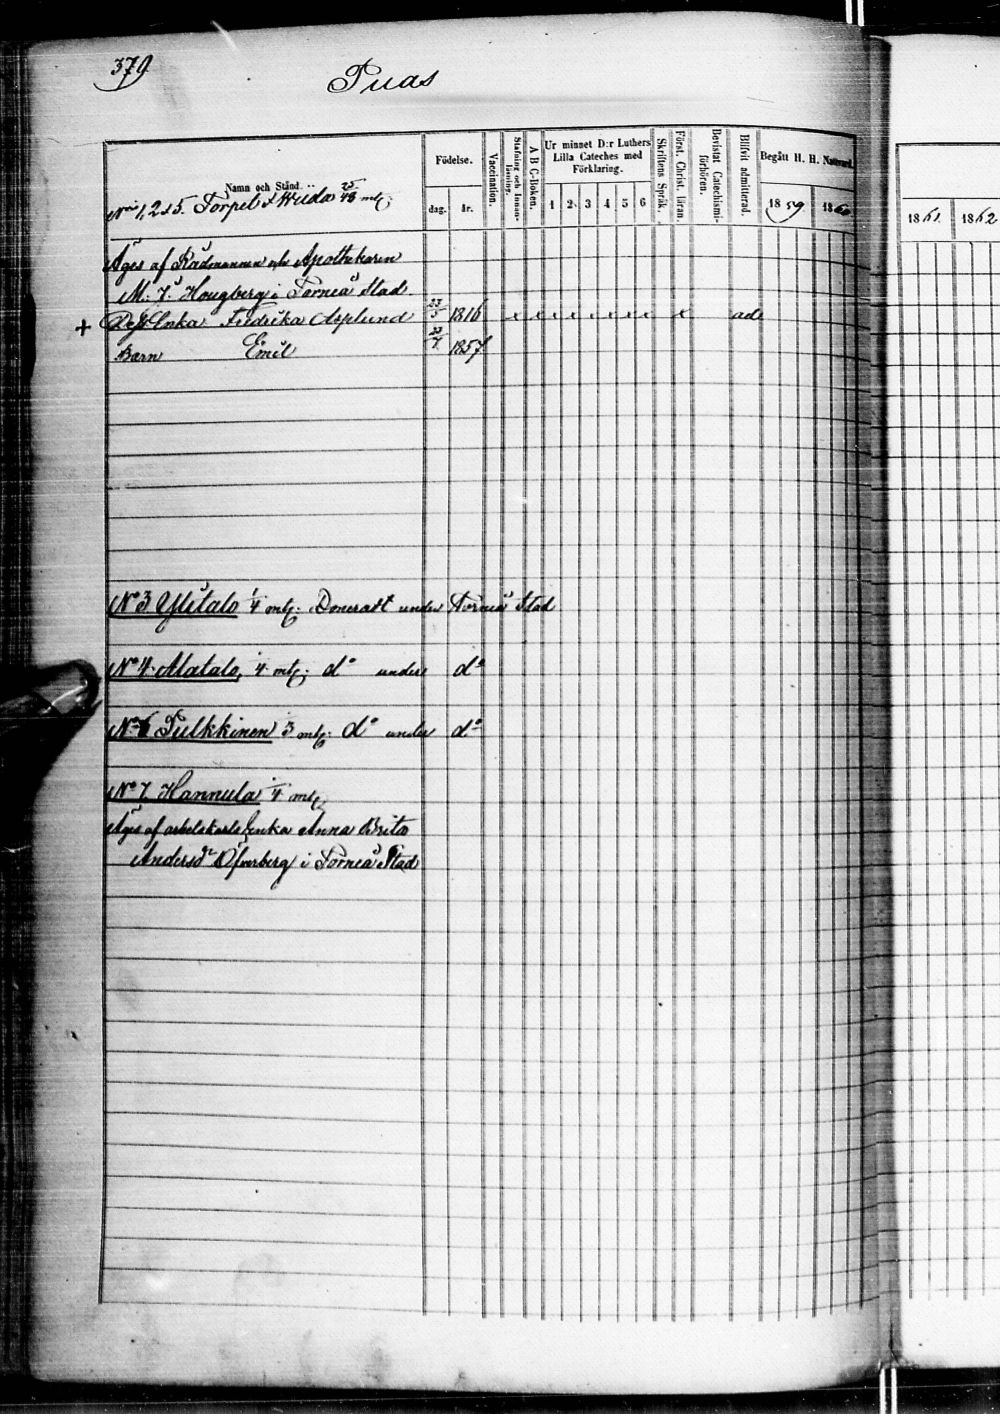 379
Puas
Namn och Stånd.
Födelse.
dag. år.
Vaccination.
Stafning och Innan-läsning.
A B C-Boken.
Ur minnet D:r Luthers
Lilla Cateches med
Förklaring.
1 2 3 4 5 6
Skriftens Språk.
Först. Christ. läran.
Bevistat Catechismi-förhören.
Blifvit admitterad.
Begått H. H. Nattvard.
1859 1860 1861 1862
1, 2 & 5. Torpet
Äges af Rådmannen och Apothekaren
M. J. Hougberg i Torneå Stad
+ Enka Fredrika Asplund 23/5 1816 x x x x x x x x x ad
Barn Emil 1857
No 3 Ylitalo 1/4 mtl. Doneradt under Torneå Stad
No 4. Alatalo, 1/4 mtl. do under do
No 6 Pulkkinen mtl. do under do
No 7. Hannula 1/4 mtl.
Äges af arbetskarls Enka Anna Brita
Andersdr Öfverberg i Torneå Stad